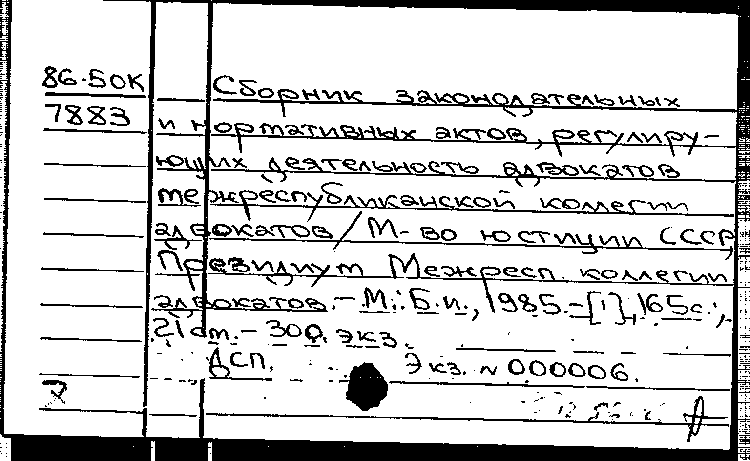 86-50К Сборник законодательных
7883 и нормативных актов, регулиру-
ющих деятельность адвокатов
межреспубликанской коллегии
адвокатов/М-во юстиции СССР,
Президиум Межресп. коллегии
адвокатов.-М.:Б.и., 1985.-[1],165с.;
21см.- 300. экз.
ДСП. Экз. N 000006.